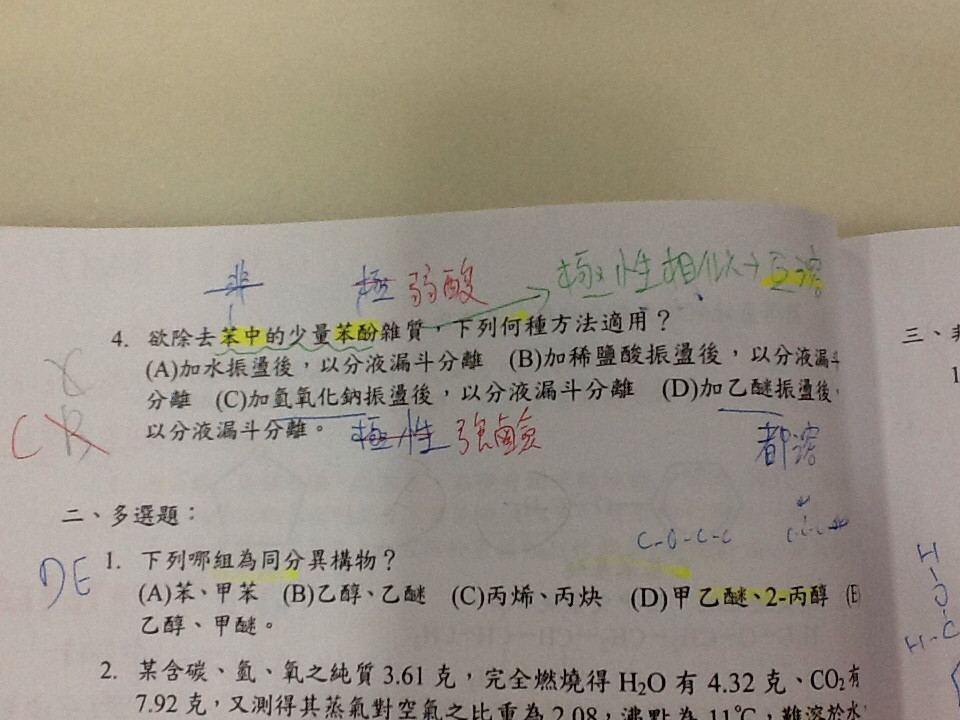 非 極 弱酸 極性相似→互溶
4. 欲除去苯中的少量苯酚雜質，下列何種方法適用？
(A)加水振盪後，以分液漏斗分離 (B)加稀鹽酸振盪後，以分液漏斗
分離 (C)加氫氧化鈉振盪後，以分液漏斗分離 (D)加乙醚振盪後，
以分液漏斗分離。
C
極性 強鹼 都溶
二、多選題：
C-O-C-C
DE
1. 下列哪組為同分異構物？
(A)苯、甲苯 (B)乙醇、乙醚 (C)丙烯、丙炔 (D)甲乙醚、2-丙醇 (E)
乙醇、甲醚。
2. 某含碳、氫、氧之純質 3.61 克，完全燃燒得 H₂O 有 4.32 克、CO₂有
7.92 克，又測得其蒸氣對空氣之比重為 2.08，沸點為 11℃，難溶於水
三、
1
H
O
H-C